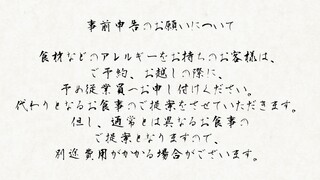 事前申告のお願いについて
食材などのアレルギーをお持ちのお客様は、
ご予約、お越しの際に、
予め従業員へお申し付けください。
代わりとなるお食事のご提案をさせていただきます。
但し、通常とは異なるお食事の
ご提案となりますので、
別途費用がかかる場合がございます。